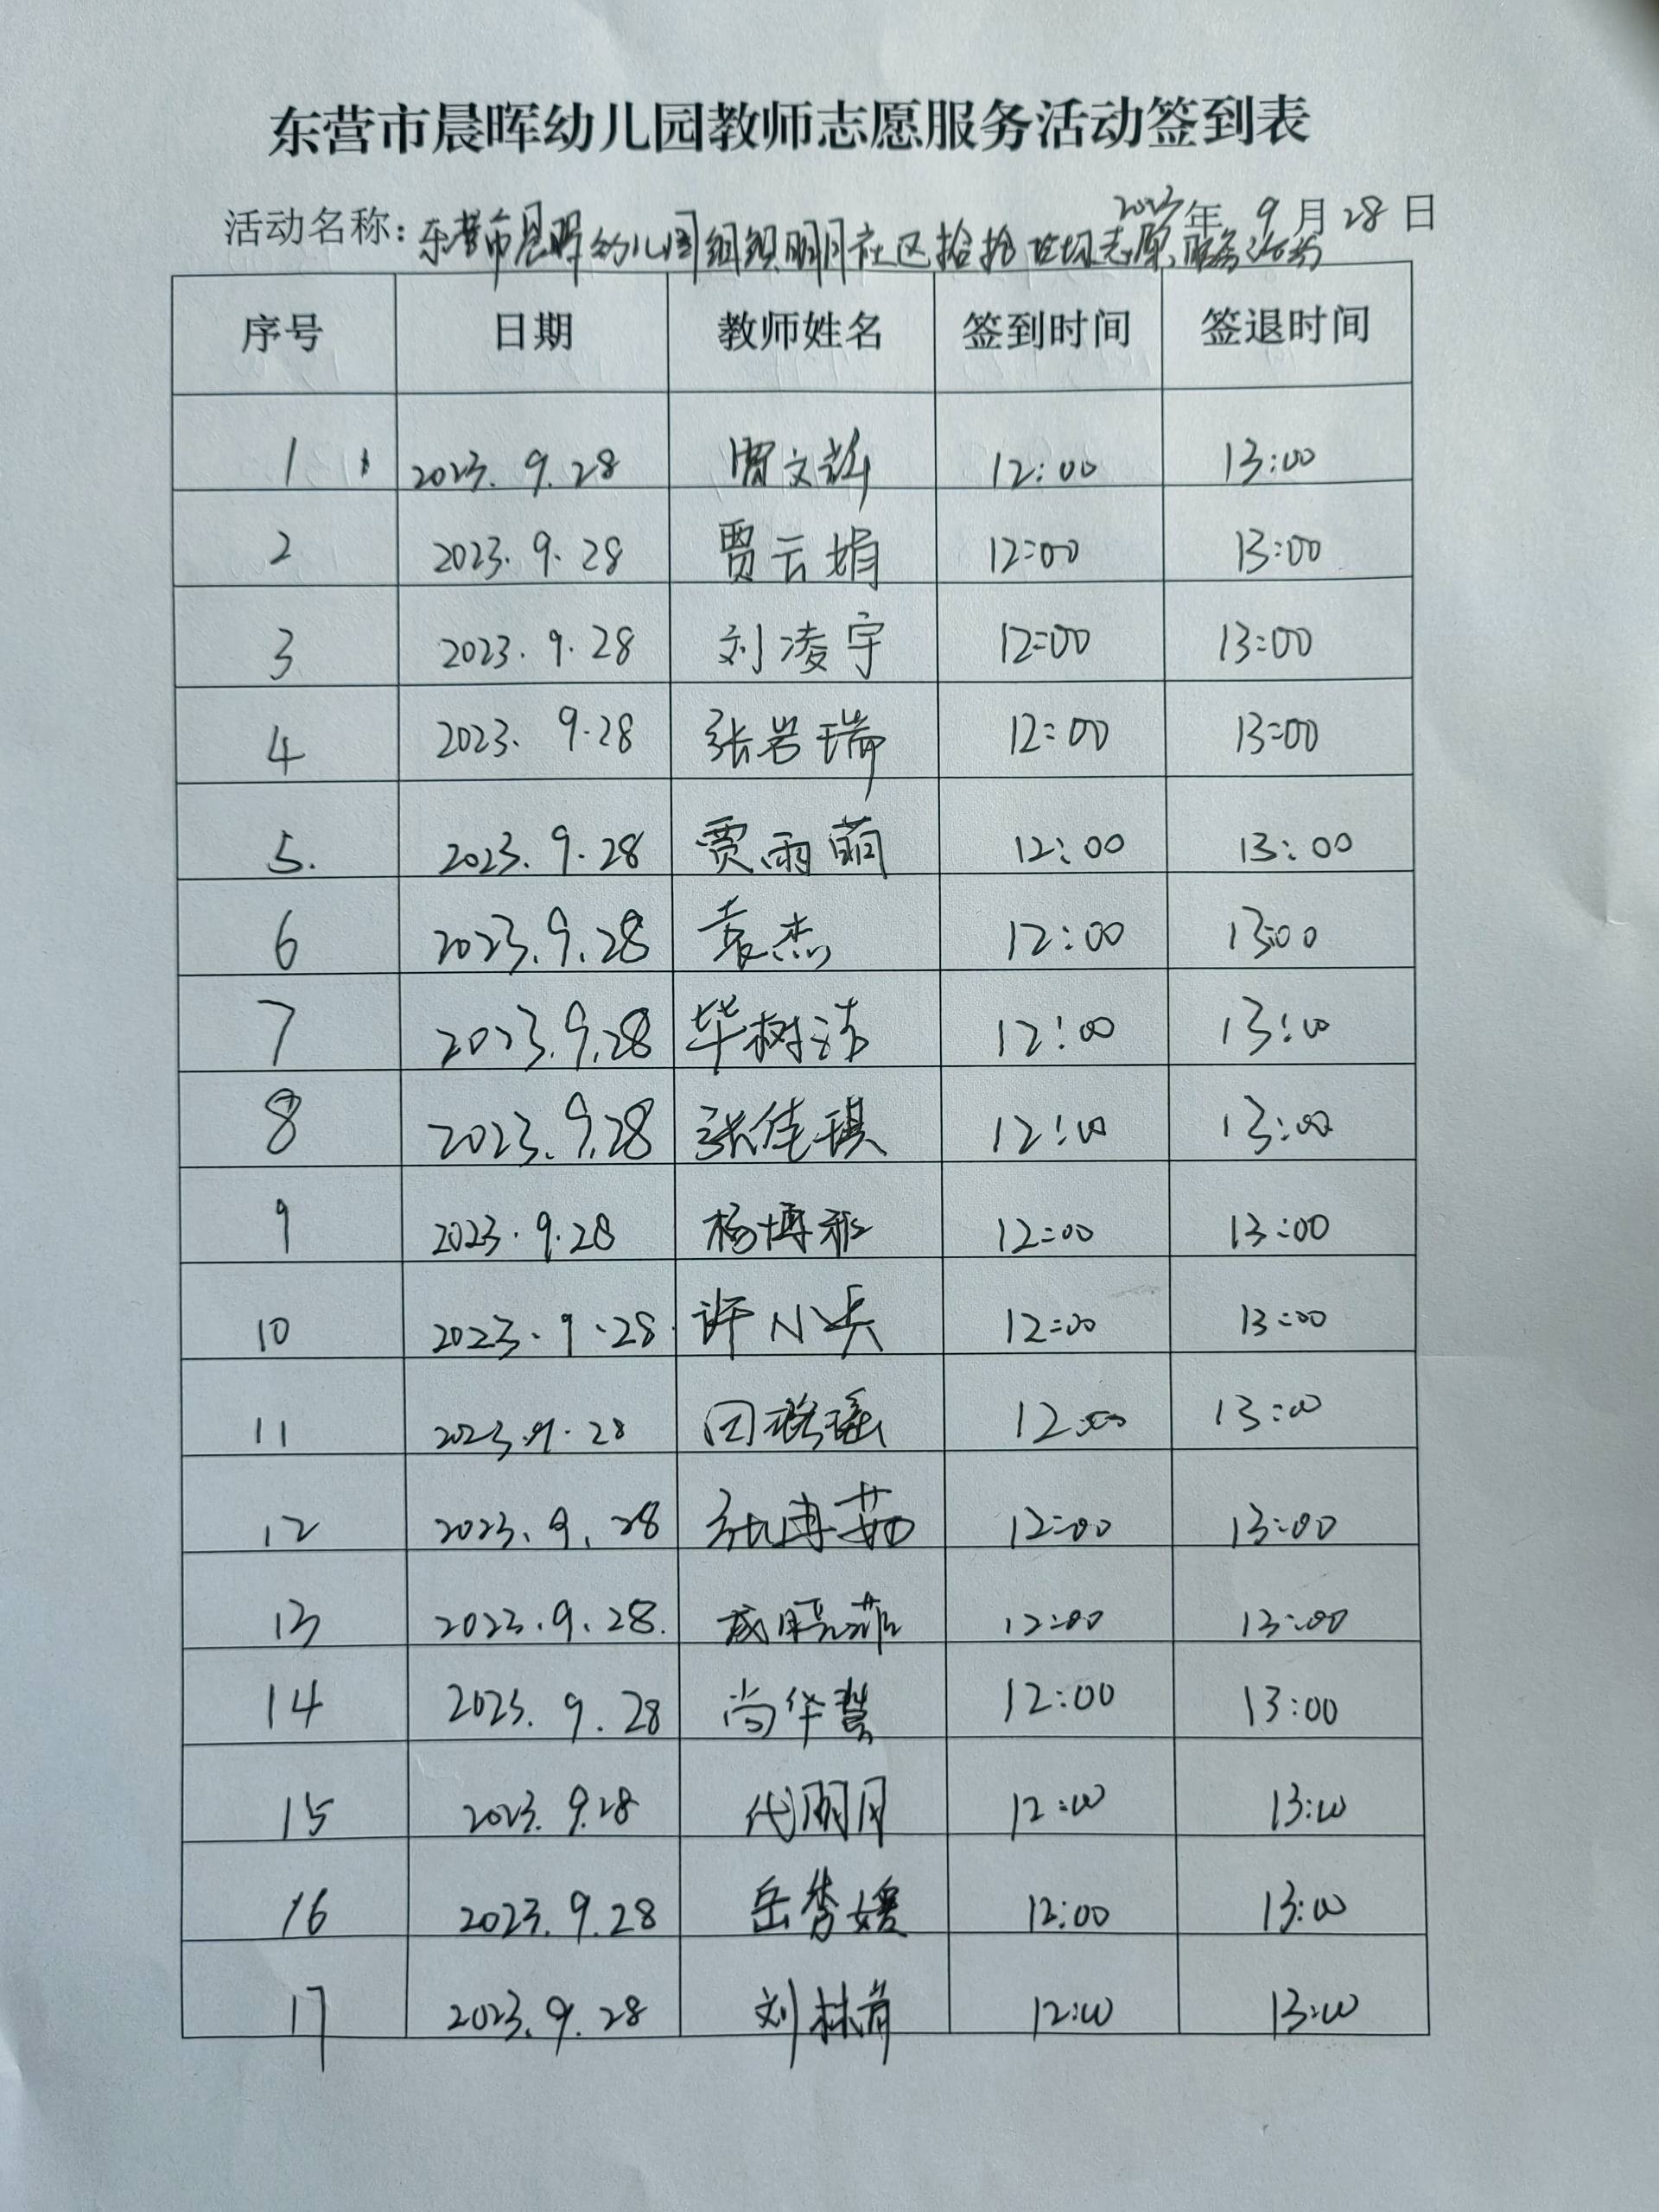 东营市晨晖幼儿园教师志愿服务活动签到表
活动名称: 东营市晨晖幼儿园组织明月社区捡拾垃圾志愿服务活动 2023年 9月28日
序号 日期 教师姓名 签到时间 签退时间
1 2023.9.28 贾文 12:00 13:00
2 2023.9.28 贾云娟 12:00 13:00
3 2023.9.28 刘凌宇 12:00 13:00
4 2023.9.28 张岩瑞 12:00 13:00
5. 2023.9.28 贾雨萌 12:00 13:00
6 2023.9.28 袁杰 12:00 13:00
7 2023.9.28 毕树洁 12:00 13:00
8 2023.9.28 张佳琪 12:00 13:00
9 2023.9.28 杨博雅 12:00 13:00
10 2023.9.28 许小兵 12:00 13:00
11 2023.9.28 瑶 12:00 13:00
12 2023.9.28 张博茹 12:00 13:00
13 2023.9.28. 成晓菲 12:00 13:00
14 2023.9.28 尚华慧 12:00 13:00
15 2023.9.28 代明月 12:00 13:00
16 2023.9.28 岳秀媛 12:00 13:00
17 2023.9.28 刘林肖 12:00 13:00